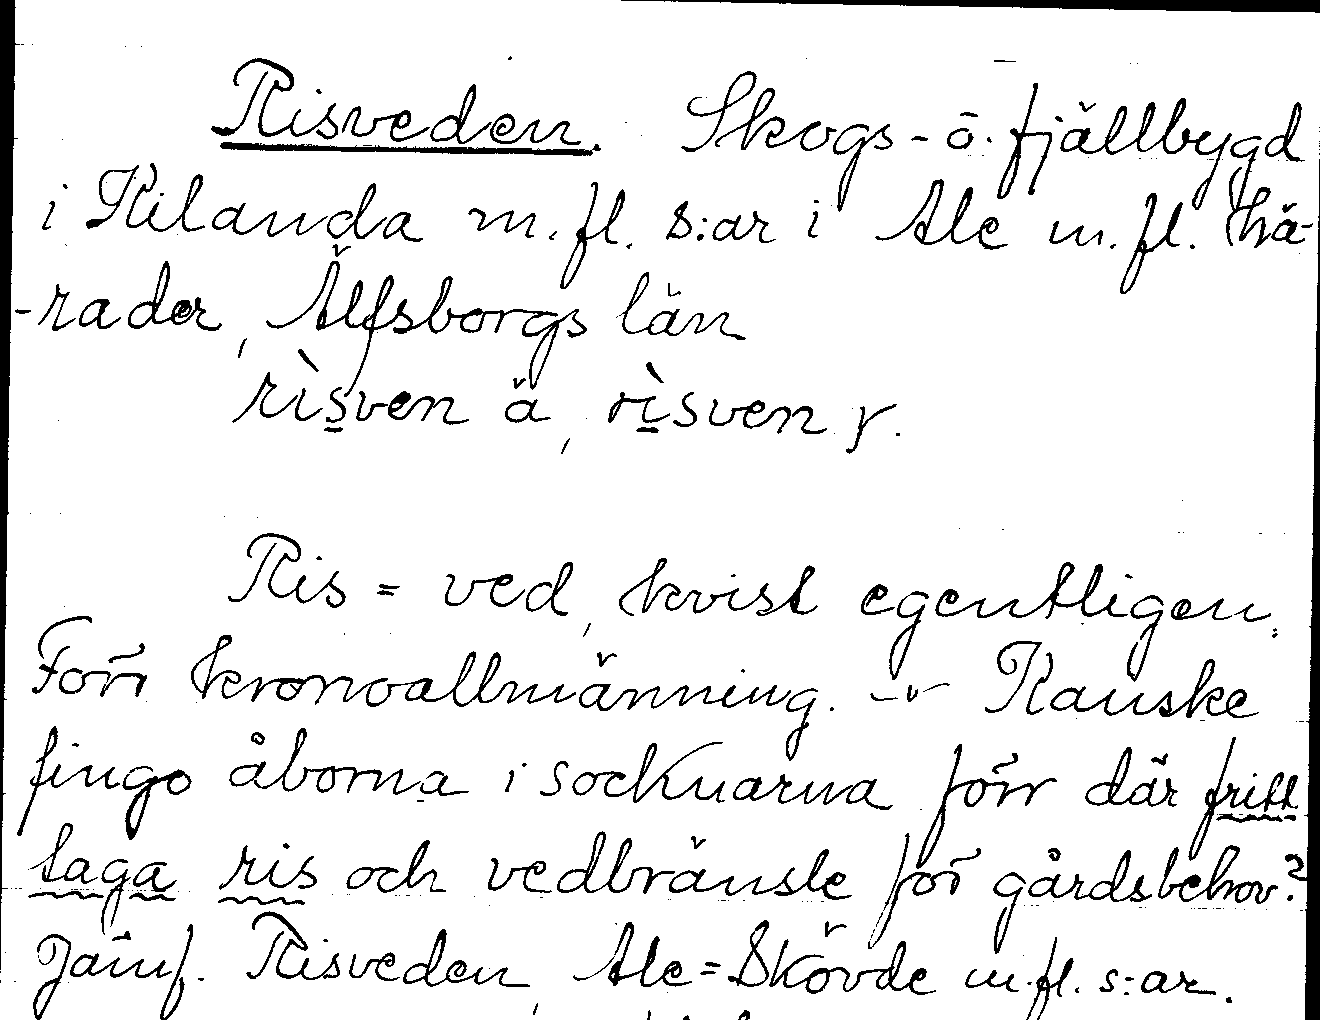 Risveden. Skogs- o. fjällbygd
i Kilanda m. fl. s:ar i Ale m. fl. hä-
-rader, Älfsborgs län
rìsven ä, rìsven r.
Ris = ved, kvist egentligen.
Förr kronoallmänning. -- Kanske
fingo åborna i socknarna förr där fritt
taga ris och vedbränsle för gårdsbehov?
Jämf. Risveden, Ale=Skövde m.fl. s:ar.